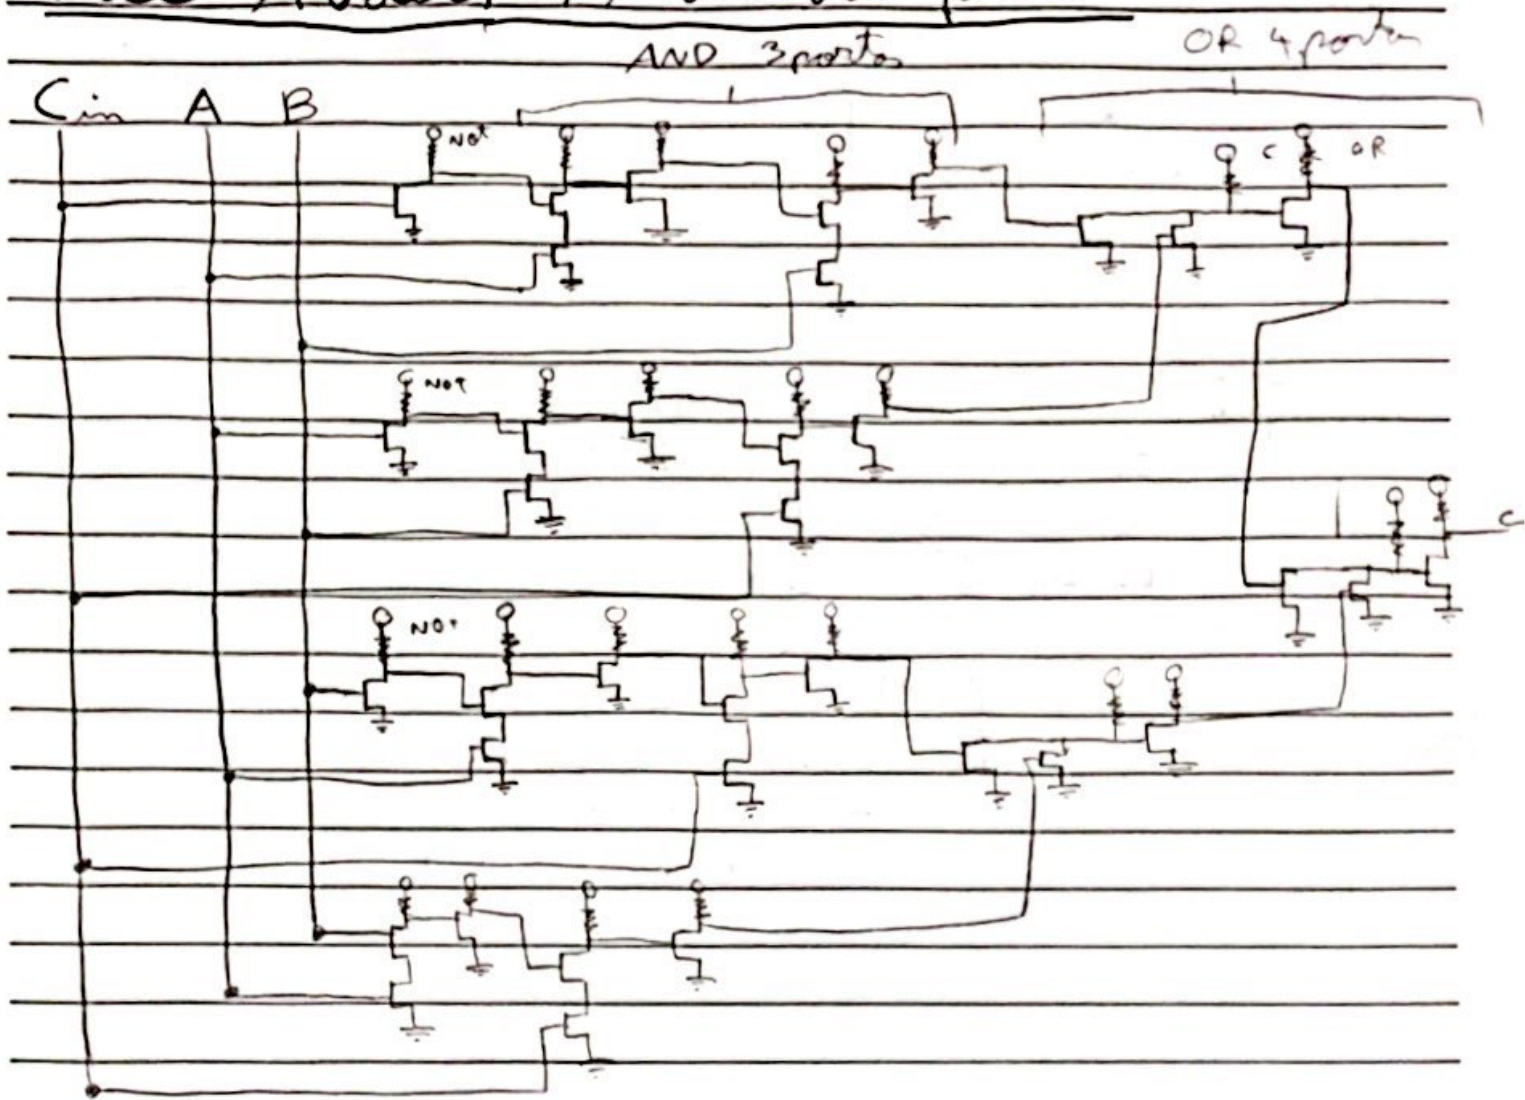 AND 3 portas
OR 4 portas
Cin A B
NOT
C OR
NOT
C
NOT